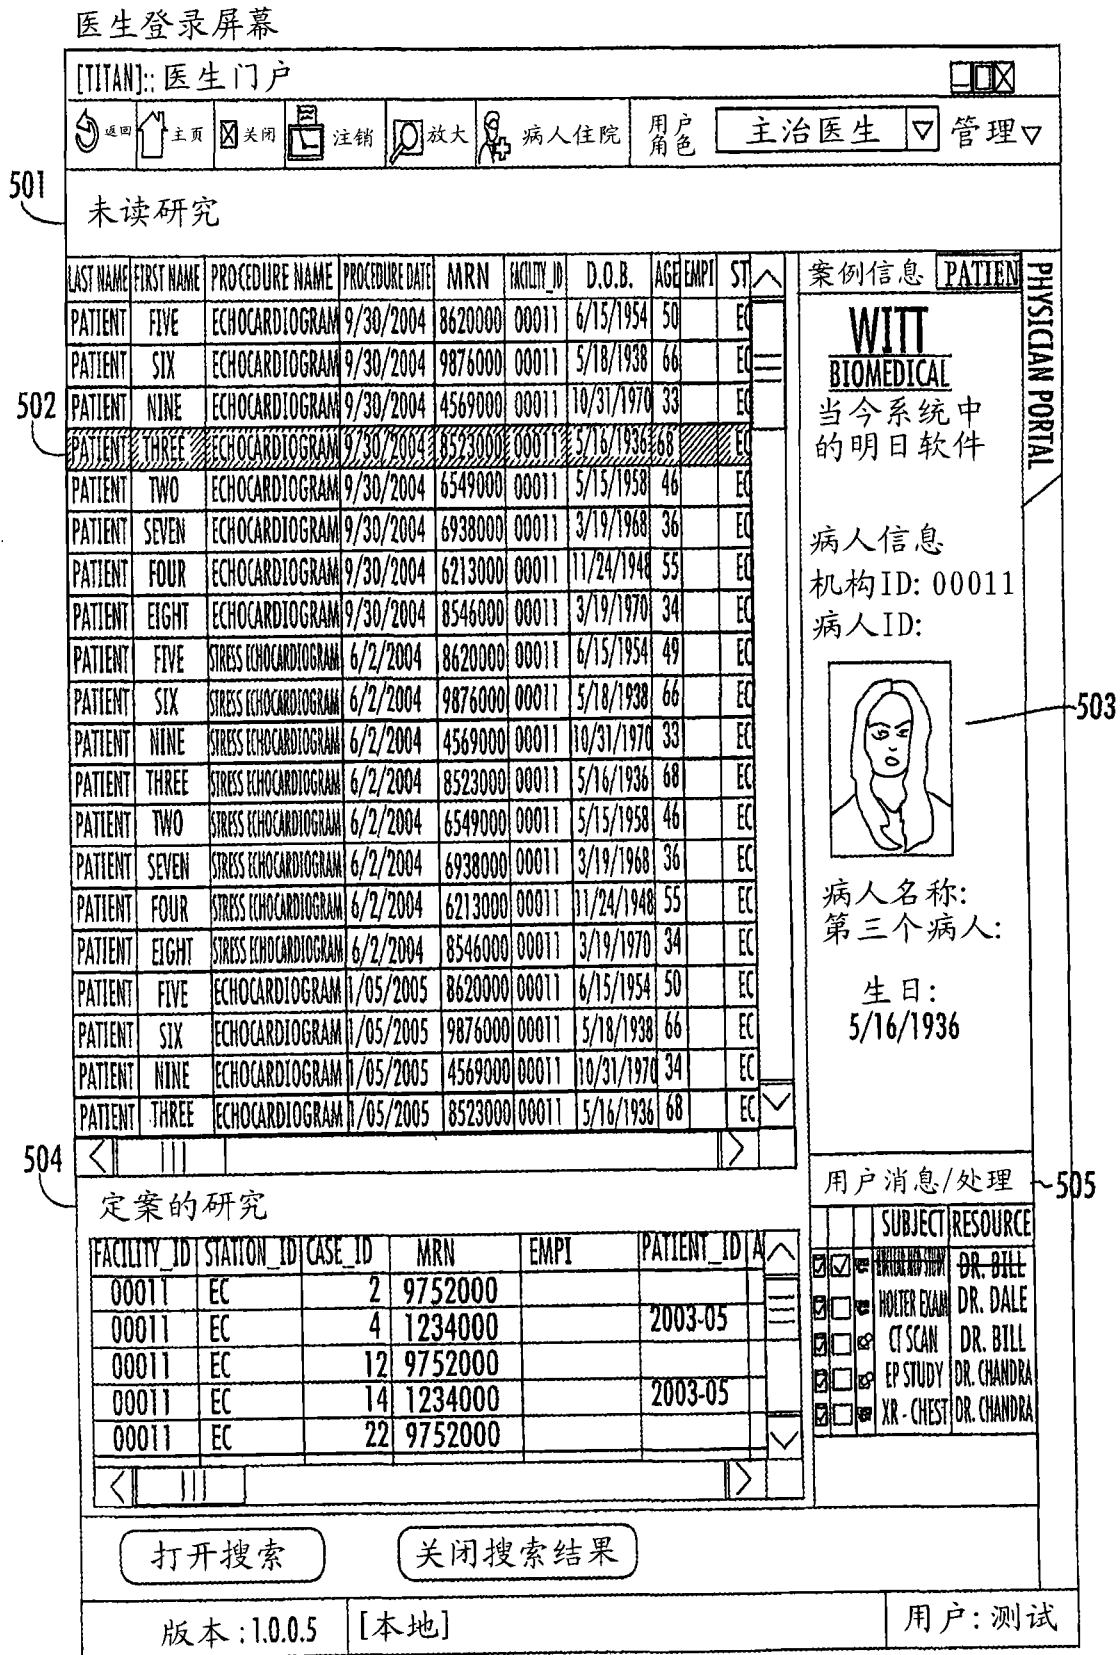 医生登录屏幕
[TITAN]:: 医生门户
返回 主页 关闭 注销 放大 病人住院 用户角色 主治医生 管理
501
未读研究
LAST NAME FIRST NAME PROCEDURE NAME PROCEDURE DATE MRN FACILITY_ID D.O.B. AGE EMPI ST
PATIENT FIVE ECHOCARDIOGRAM 9/30/2004 8620000 00011 6/15/1954 50 EC
PATIENT SIX ECHOCARDIOGRAM 9/30/2004 9876000 00011 5/18/1938 66 EC
502
PATIENT NINE ECHOCARDIOGRAM 9/30/2004 4569000 00011 10/31/1970 33 EC
PATIENT THREE ECHOCARDIOGRAM 9/30/2004 8523000 00011 5/16/1936 68 EC
PATIENT TWO ECHOCARDIOGRAM 9/30/2004 6549000 00011 5/15/1958 46 EC
PATIENT SEVEN ECHOCARDIOGRAM 9/30/2004 6938000 00011 3/19/1968 36 EC
PATIENT FOUR ECHOCARDIOGRAM 9/30/2004 6213000 00011 11/24/1948 55 EC
PATIENT EIGHT ECHOCARDIOGRAM 9/30/2004 8546000 00011 3/19/1970 34 EC
PATIENT FIVE STRESS ECHOCARDIOGRAM 6/2/2004 8620000 00011 6/15/1954 49 EC
PATIENT SIX STRESS ECHOCARDIOGRAM 6/2/2004 9876000 00011 5/18/1938 66 EC
PATIENT NINE STRESS ECHOCARDIOGRAM 6/2/2004 4569000 00011 10/31/1970 33 EC
PATIENT THREE STRESS ECHOCARDIOGRAM 6/2/2004 8523000 00011 5/16/1936 68 EC
PATIENT TWO STRESS ECHOCARDIOGRAM 6/2/2004 6549000 00011 5/15/1958 46 EC
PATIENT SEVEN STRESS ECHOCARDIOGRAM 6/2/2004 6938000 00011 3/19/1968 36 EC
PATIENT FOUR STRESS ECHOCARDIOGRAM 6/2/2004 6213000 00011 11/24/1948 55 EC
PATIENT EIGHT STRESS ECHOCARDIOGRAM 6/2/2004 8546000 00011 3/19/1970 34 EC
PATIENT FIVE ECHOCARDIOGRAM 1/05/2005 8620000 00011 6/15/1954 50 EC
PATIENT SIX ECHOCARDIOGRAM 1/05/2005 9876000 00011 5/18/1938 66 EC
PATIENT NINE ECHOCARDIOGRAM 1/05/2005 4569000 00011 10/31/1970 34 EC
PATIENT THREE ECHOCARDIOGRAM 1/05/2005 8523000 00011 5/16/1936 68 EC
案例信息 PATIEN
PHYSICIAN PORTAL
WITT
BIOMEDICAL
当今系统中
的明日软件
病人信息
机构ID: 00011
病人ID:
503
病人名称:
第三个病人:
生日:
5/16/1936
504
定案的研究
FACILITY_ID STATION_ID CASE_ID MRN EMPI PATIENT_ID A
00011 EC 2 9752000
00011 EC 4 1234000 2003-05
00011 EC 12 9752000
00011 EC 14 1234000 2003-05
00011 EC 22 9752000
用户消息/处理
505
SUBJECT RESOURCE
DR. BILL
HOLTER EXAM DR. DALE
CT SCAN DR. BILL
EP STUDY DR. CHANDRA
XR - CHEST DR. CHANDRA
打开搜索 关闭搜索结果
版本:1.0.0.5 [本地] 用户:测试